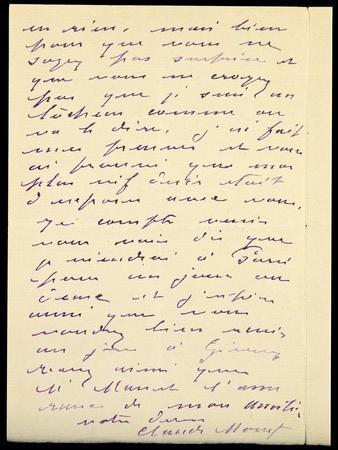 en rien, mais bien
pour que vous ne
soyez pas surprise et
que vous ne croyez
pas que je suis un
lâcheur comme on
va le dire, j'ai fait
mes preuves et vous
ai prouvé que mon
plus vif désir était
d'exposer avec vous.
je compte
vous mais dès que
je viendrai à Paris
pour un jour ou
deux et j'espère
aussi que vous
voudrez bien venir
un jour à Giverny
ainsi que
M. Manet l'assu
rance de mon amitié
votre dévoué
Claude Monet